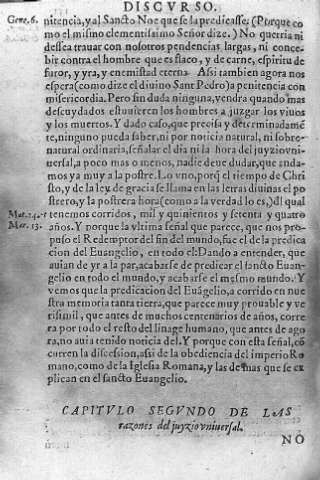 DISCVRSO.
Gene.6. nitencia, y al Sancto Noe que se la predicasse. (Porque co
mo el mismo clementissimo Señor dize.) No querria ni
dessea trauar con nosotros pendencias largas, ni conce-
bir contra el hombre que es flaco, y de carne, espiritu de
furor, y yra, y enemistad eterna. Assi tambien agora nos
espera (como dize el diuino Sant Pedro) a penitencia con
misericordia. Pero sin duda ninguna, vendra quando mas
descuydados estuuieren los hombres a juzgar los viuos
y los muertos. Y dado caso, que precisa y determinadamē
te, ninguno pueda saber, ni por noticia natural, ni sobre-
natural ordinaria, señalar el dia ni la hora del juyzio vni-
uersal, a poco mas o menos, nadie deue dudar, que anda-
mos ya muy a la postre. Lo vno, porq̃ el tiempo de Chri
sto, y de la ley de gracia se llama en las letras diuinas el po
strero, y la postrera hora (como a la verdad lo es,) dl qual
Mat.24. tenemos corridos, mil y quinientos y setenta y quatro
Mar.13. años. Y porque la vltima señal que parece, que nos pro-
puso el Redemptor del fin del mundo, fue el de la predica
cion del Euangelio, en todo el: Dando a entender, que
auian de yr a la par, acabarse de predicar el sancto Euan-
gelio en todo el mundo, y acabarse el mesmo mundo. Y
vemos que la predicacion del Euāgelio, a corrido en nue
stra memoria tanta tierra, que parece muy prouable y ve
risimil, que antes de muchos centenarios de años, corre
ra por todo el resto del linage humano, que antes de ago
ra, no auia tenido noticia del. Y porque con esta señal, cō
curren la discession, assi de la obediencia del imperio Ro
mano, como de la Iglesia Romana, y las demas que se ex
plican en el sancto Euangelio.
CAPITVLO SEGVNDO DE LAS
razones del juyzio vniuersal.
NO